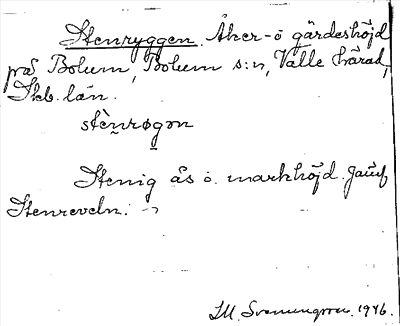 Stenryggen. Åker- o gärdeshöjd
på Bolum, Bolum s:n, Valle härad,
Skb. län.
stènrøgən
Stenig ås o. markhöjd. Jämf
Stenreveln.
I.M. Svenungsson. 1946.